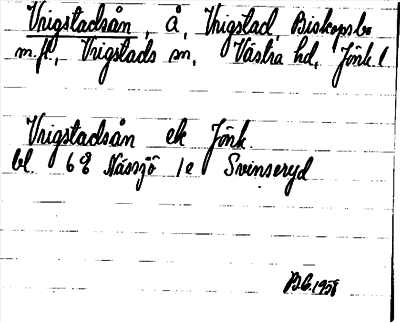 Vrigstadsån, å, Vrigstad, Biskopsbo
m.fl., Vrigstads sn, Västra hd, Jönk l
Vrigstadsån ek Jönk.
bl 6e Nässjö 1e Svinseryd
1958